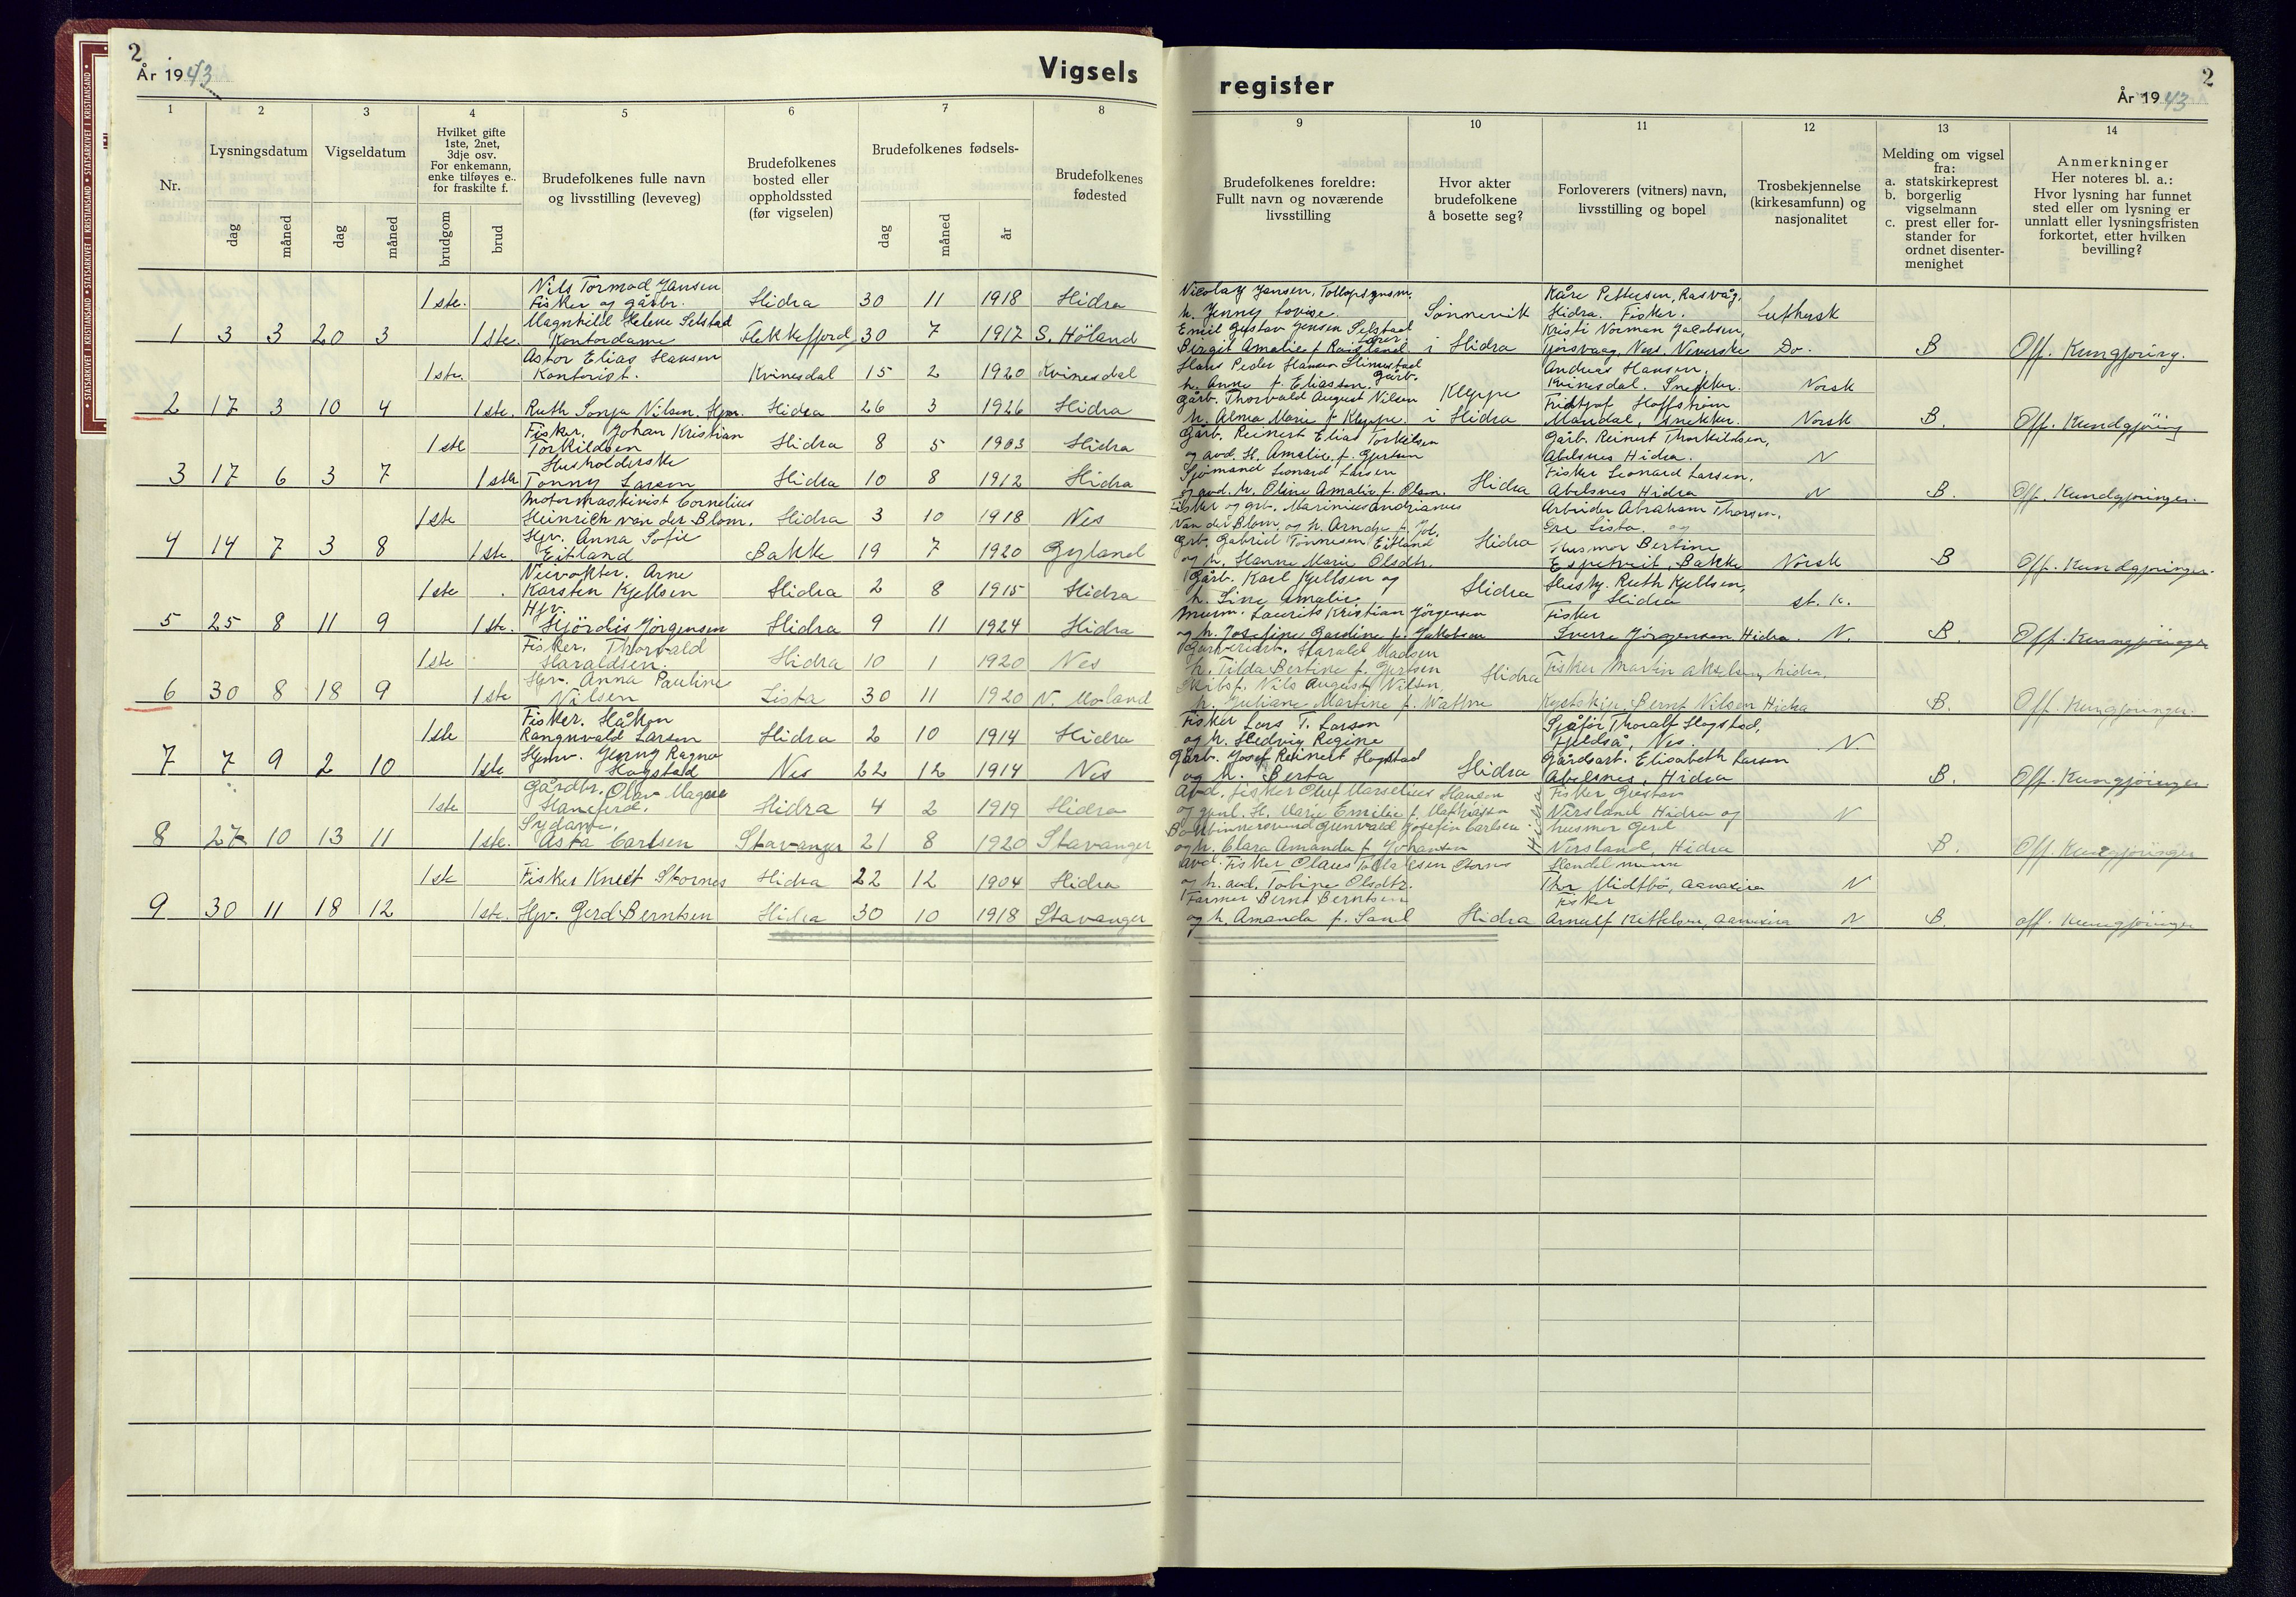 2
År 1943
Vigsels
register
2
År 1943
1 2 3 4 5 6 7 8
9 10 11 12 13 14
Nr.
Lysningsdatum
Vigseldatum
Hvilket gifte
1ste, 2net,
3dje osv.
For enkemann,
enke tilføyes e..
for fraskilte f.
Brudefolkenes fulle navn
og livsstilling (leveveg)
Brudefolkenes
bosted eller
oppholdssted
(før vigselen)
Brudefolkenes fødsels-
Brudefolkenes
fødested
dag måned dag måned brudgom brud dag måned år
Brudefolkenes foreldre:
Fullt navn og noværende
livsstilling
Hvor akter
brudefolkene
å bosette seg?
Forloverers (vitners) navn,
livsstilling og bopel
Trosbekjennelse
(kirkesamfunn) og
nasjonalitet
Melding om vigsel
fra:
a. statskirkeprest
b. borgerlig
vigselmann
c. prest eller for-
stander for
ordnet disenter-
menighet
Anmerkninger
Her noteres bl. a.:
Hvor lysning har funnet
sted eller om lysning er
unnlatt eller lysningsfristen
forkortet, etter hvilken
bevilling?
Nils Tormod Jansen
1ste. Fisker og gårbr. Hidra 30 11 1918 Hidra
Magnhild Helene Selstad
1 3 3 20 3 1ste. Kontordame Flekkefjord 30 7 1917 S. Höland
Astor Elias Hansen
1ste. Kontorist. Kvinesdal 15 2 1920 Kvinesdal
2 17 3 10 4 1ste. Ruth Sonja Nilsen. Hjm. Hidra 26 3 1926 Hidra
Fisker. Johan Kristian
1ste Torkildsen Hidra 8 5 1903 Hidra
Husholderske
3 17 6 3 7 1ste Tonny Larsen Hidra 10 8 1912 Hidra
Motormaskinist Cornelius
1ste Heinrich van der Blom. Hidra 3 10 1918 Nes
Hjv. Anna Sofie
4 14 7 3 8 1ste. Eitland Bakke 19 7 1920 Gyland
Arne
1ste Karsten Kjellsen Hidra 2 8 1915 Hidra
Hjv.
5 25 8 11 9 1ste. Hjördis Jörgensen Hidra 9 11 1924 Hidra
Fisker. Thorvald
1ste Haraldsen. Hidra 10 1 1920 Nes
Hjv. Anna Pauline
6 30 8 18 9 1ste Nilsen Lista 30 11 1920 N. Moland
Fisker. Håkon
1ste Rangnvald Larsen Hidra 2 10 1914 Hidra
Hjmv. Jenny Ragna
7 7 9 2 10 1ste Hogstad Nes 22 12 1914 Nes
Gårdbr. Olav Magne
1ste Hidra 4 2 1919 Hidra
Sydame.
8 27 10 13 11 1ste. Asta Carlsen Stavanger 21 8 1920 Stavanger
1ste Fisker Knut Stornes Hidra 22 12 1904 Hidra
9 30 11 18 12 1ste. Hjv. Gerd Berntsen Hidra 30 10 1918 Stavanger
Nicolay Jansen, Kåre Pettersen, Rasvåg,
h. Jenny Lovise. Sønnevik Hidra. Fisker. Luthersk
Emil Gustav Jensen Selstad Kristi Norman Jacobsen,
Birgit Amalie f. i Hidra Do. B Off. Kungjöring.
Hans Peder Hansen Andreas Hansen,
h. Anne f. Eliassen. Gårb. Kvinesdal. Snekker. Norsk
Gårb. Thorvald August Nilsen Kleppe Fridtjof Hoffström
h. Alma Marie f. Kleppe. i Hidra Mandal, snekker. Norsk B. Off. Kundgjöring
Gårb. Reinert Elias Torkilsen Gårb. Reinert Thorkildsen,
og avd. H. Amalie, f. Gjertsen Abelsnes Hidra. N
Sjömand Leonard Larsen Fisker Leonard Larsen,
og avd. h. Oline Amalie f. Olsen. Hidra Abelsnes Hidra N B. Off. Kundgjöringer.
Fisker og grb. Marinius Andrianus Arbeider Abraham Thorsen,
Van der Blom, og h. Arndre f. Ore Lista. og
Grb. Gabriel Tønnesen Eitland Hidra Husmor Bertine
og h. Hanne Marie Olsdtr. Espetveit, Bakke Norsk B Off. Kundgjöringer.
Gårb. Karl Kjellsen og Hidra Hushj. Ruth Kjellsen,
h. Line Amalie Hidra st. k.
Murm. Laurits Kristian Jörgensen Fisker
og h. Josefine Gardine f. Jakobsen Sverre Jörgensen Hidra. N. B. Off. Kungjöringer
Harald Madsen
h. Tilda Bertine f. Gjertsen Hidra Fisker Martin Akselsen, Hidra.
Skibsf. Nils August Nilsen,
h. Juliane Martine f. Watne Bernt Nilsen Hidra B. Off. Kungjøringer.
Fisker Lars T. Larsen Sjåför Thoralf Hogstad,
og h. Hedvig Regine Fjeldså, Nes. N.
Gårb. Josef Reinert Hogstad Hidra Gårdsarb. Elisabeth Larsen
og h. Berta Abelsnes, Hidra B. Off. Kungjöringer.
Avd. fisker Oluf Marselius Hansen Fisker Gustav
og gjenl. H. Marie Emilie f. Mathiassen Hidra Nersland Hidra og N
Grunvald Josefin Carlsen husmor Gerd
og h. Clara Amanda f. Johansen Nersland, Hidra B. Off. Kungjöringer
Avd. Fisker Olaus Stornes Handelsmann
og h. avd. Tobine Olsdtr. Thv Midtbö, Aanasira N
Farmer Bernt Berntsen Fisker
og h. Amanda f. Hidra Arnulf Kittelsen, Aanasira N B. off. Kungjöringer
STATSARKIVET I KRISTIANSAND • STATSARKIVET I KRISTIANSAND • STATSARKIVET I KRISTIANSAND